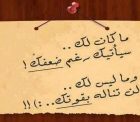 ما كان لك ..
سيأتيك رغم ضعفك !
وما ليس لك ..
لن تناله بقوتك .. :) !!